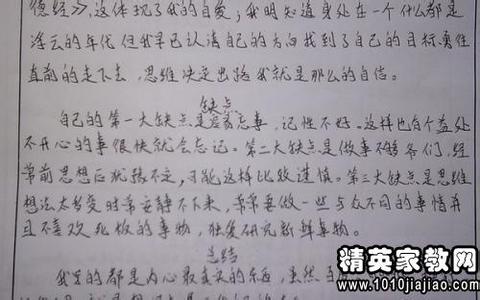 德经》，这体现了我的自爱；我明知道身处在一个什么都是
浮云的年代但我早已认清自己的方向找到了自己的目标勇往
直前的走下去，思维决定出路我就是那么的自信。
缺点
自己的第一大缺点是容易忘事，记性不好。这样也有个益处
不开心的事很快就会忘记。第二大缺点是做事不够
常前思想后犹豫不定，可能这样比较谨慎。第三大缺点是思维
想法太多变时常安静不下来，常常要做一些与众不同的事情并
且不喜欢死板的事物，独爱研究新鲜事物。
总结
我写的都是内心最真实的东西，虽然自
精英家教网
www.1010jiajiao.com